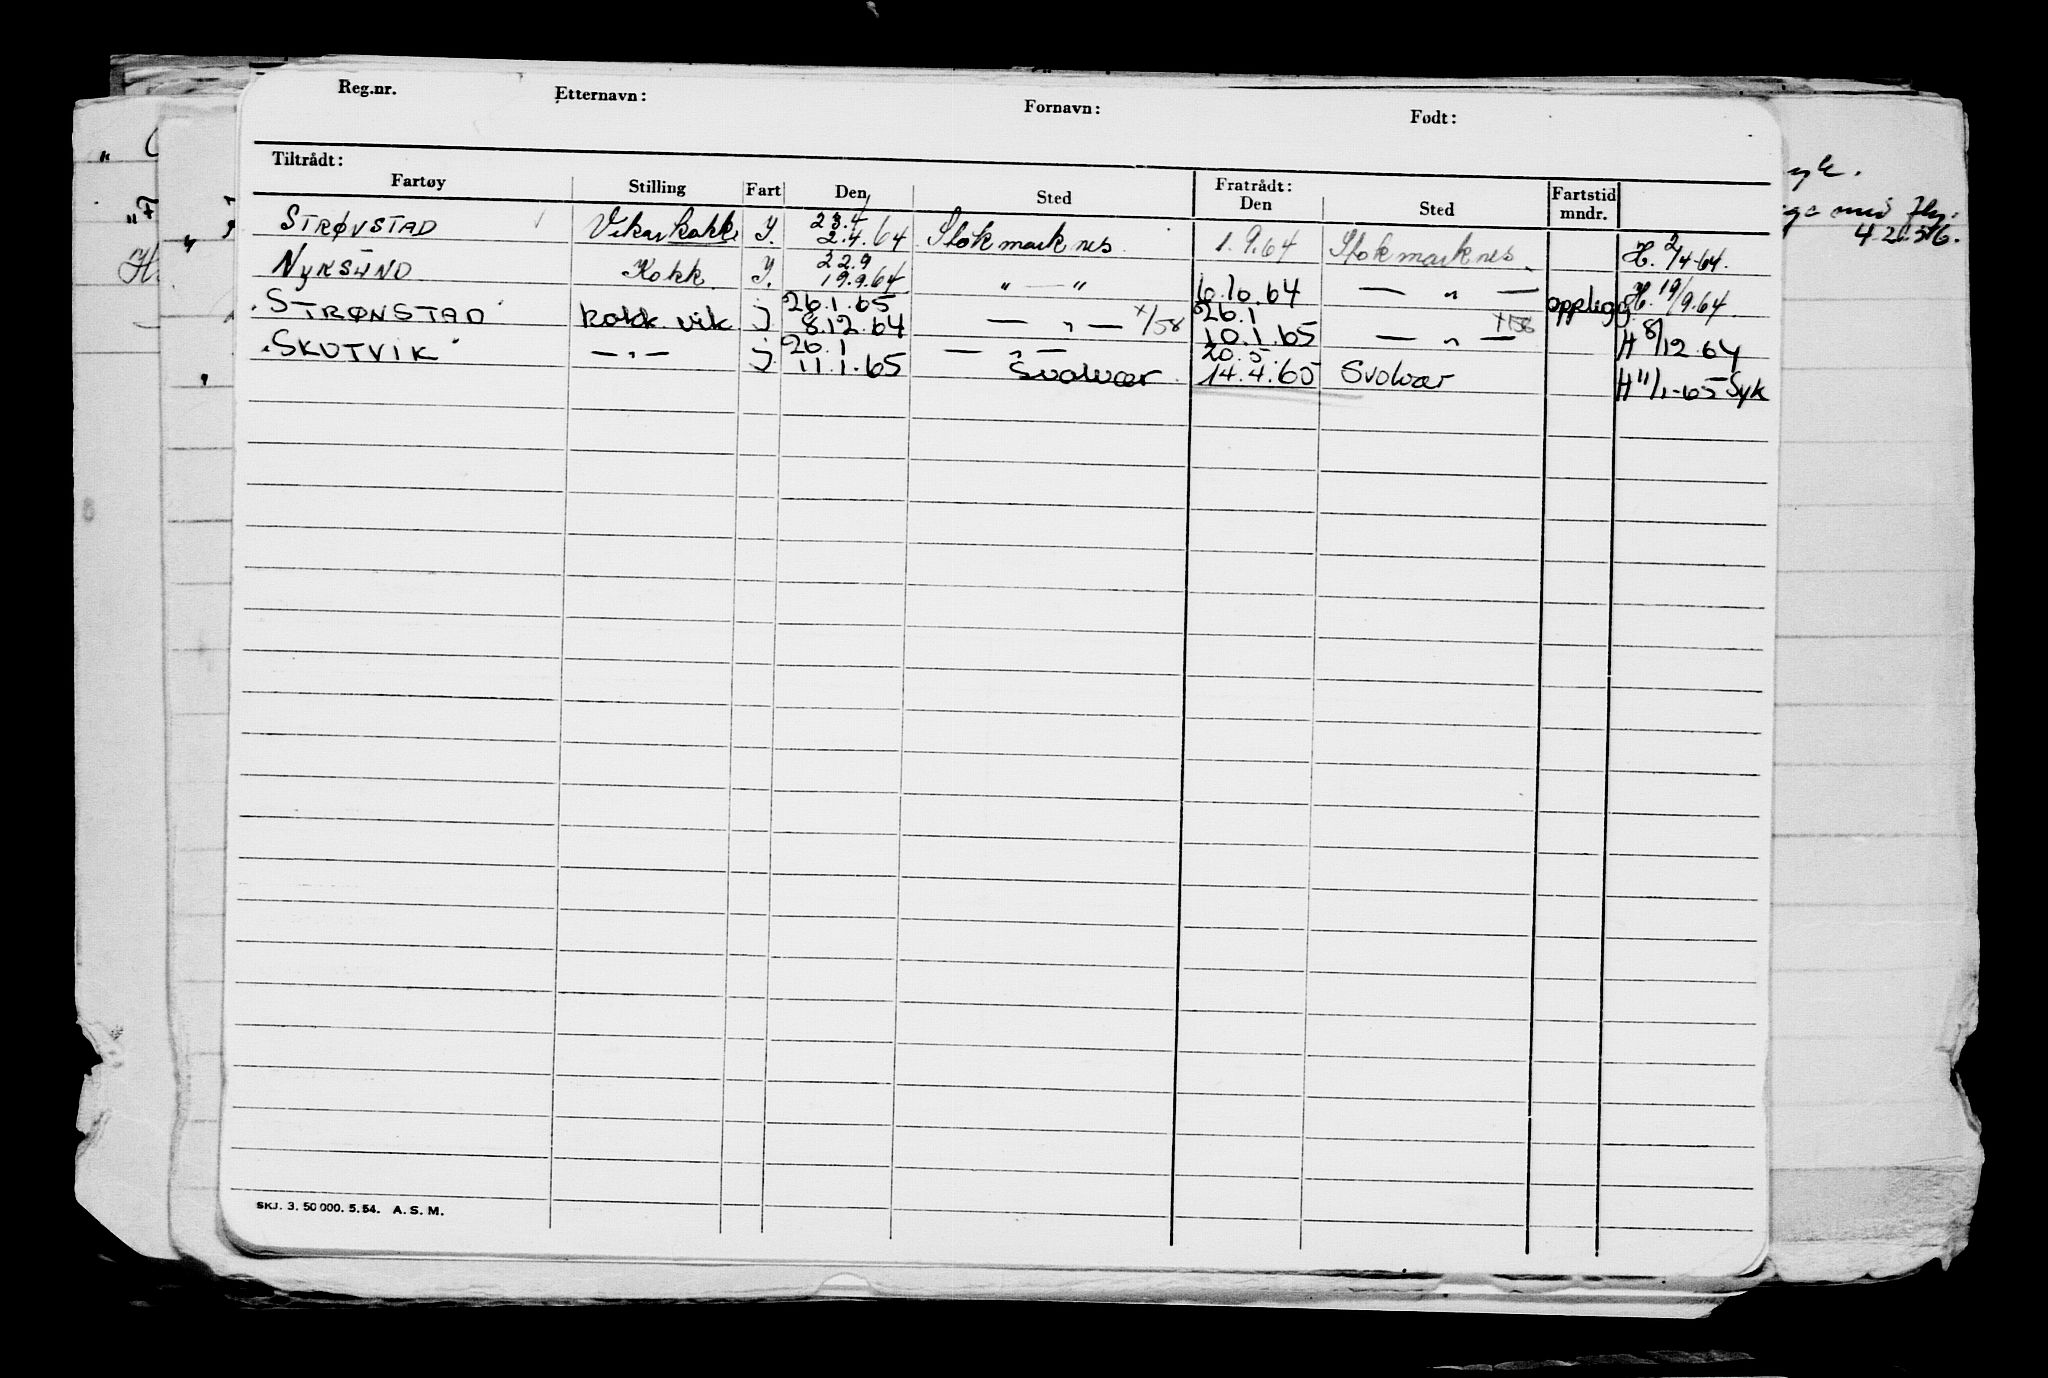 Reg.nr. Etternavn: Fornavn: Født:
Tiltrådt: Fratrådt:
Fartøy Stilling Fart Den Sted Den Sted Fartstid mndr.
23.4
STRØNSTAD Vikar kokk J. 2.4.64 Stokmarknes 1.9.64 Stokmarknes H. 2/4-64.
22.9
NYKSUND Kokk J. 19.9.64 " — " 6.10.64 — " — opplegg H. 19/9.64.
26.1.65 26.1
"STRØNSTAD" kokk vik j 8.12.64 — " — x/58 10.1.65 — " — x/58 H 8/12.64
26.1 20.5.
"SKUTVIK" — " — j 11.1.65 — " — Svolvær 14.4.65 Svolvær H 11/1-65 Syk
SKJ. 3. 50 000. 5.54. A. S. M.
4.2.56.